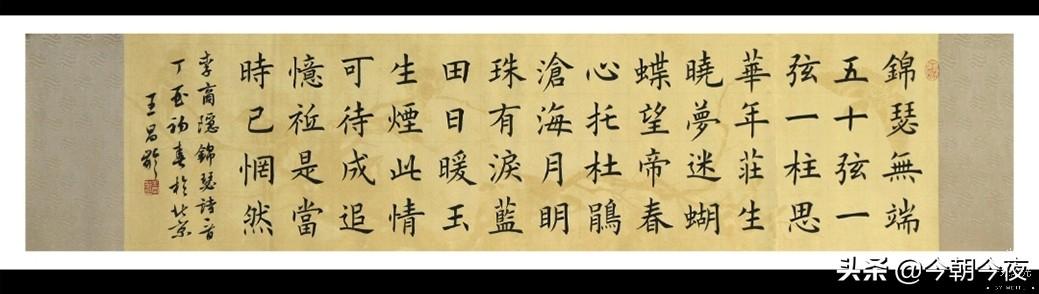 錦瑟無端
五十弦一
弦一柱思
華年莊生
曉夢迷蝴
蝶望帝春
心托杜鵑
滄海月明
珠有淚藍
田日暖玉
生煙此情
可待成追
憶祗是當
時已惘然
李商隱錦瑟詩一首
丁酉初春於北京
王昌
头条 @今朝今夜